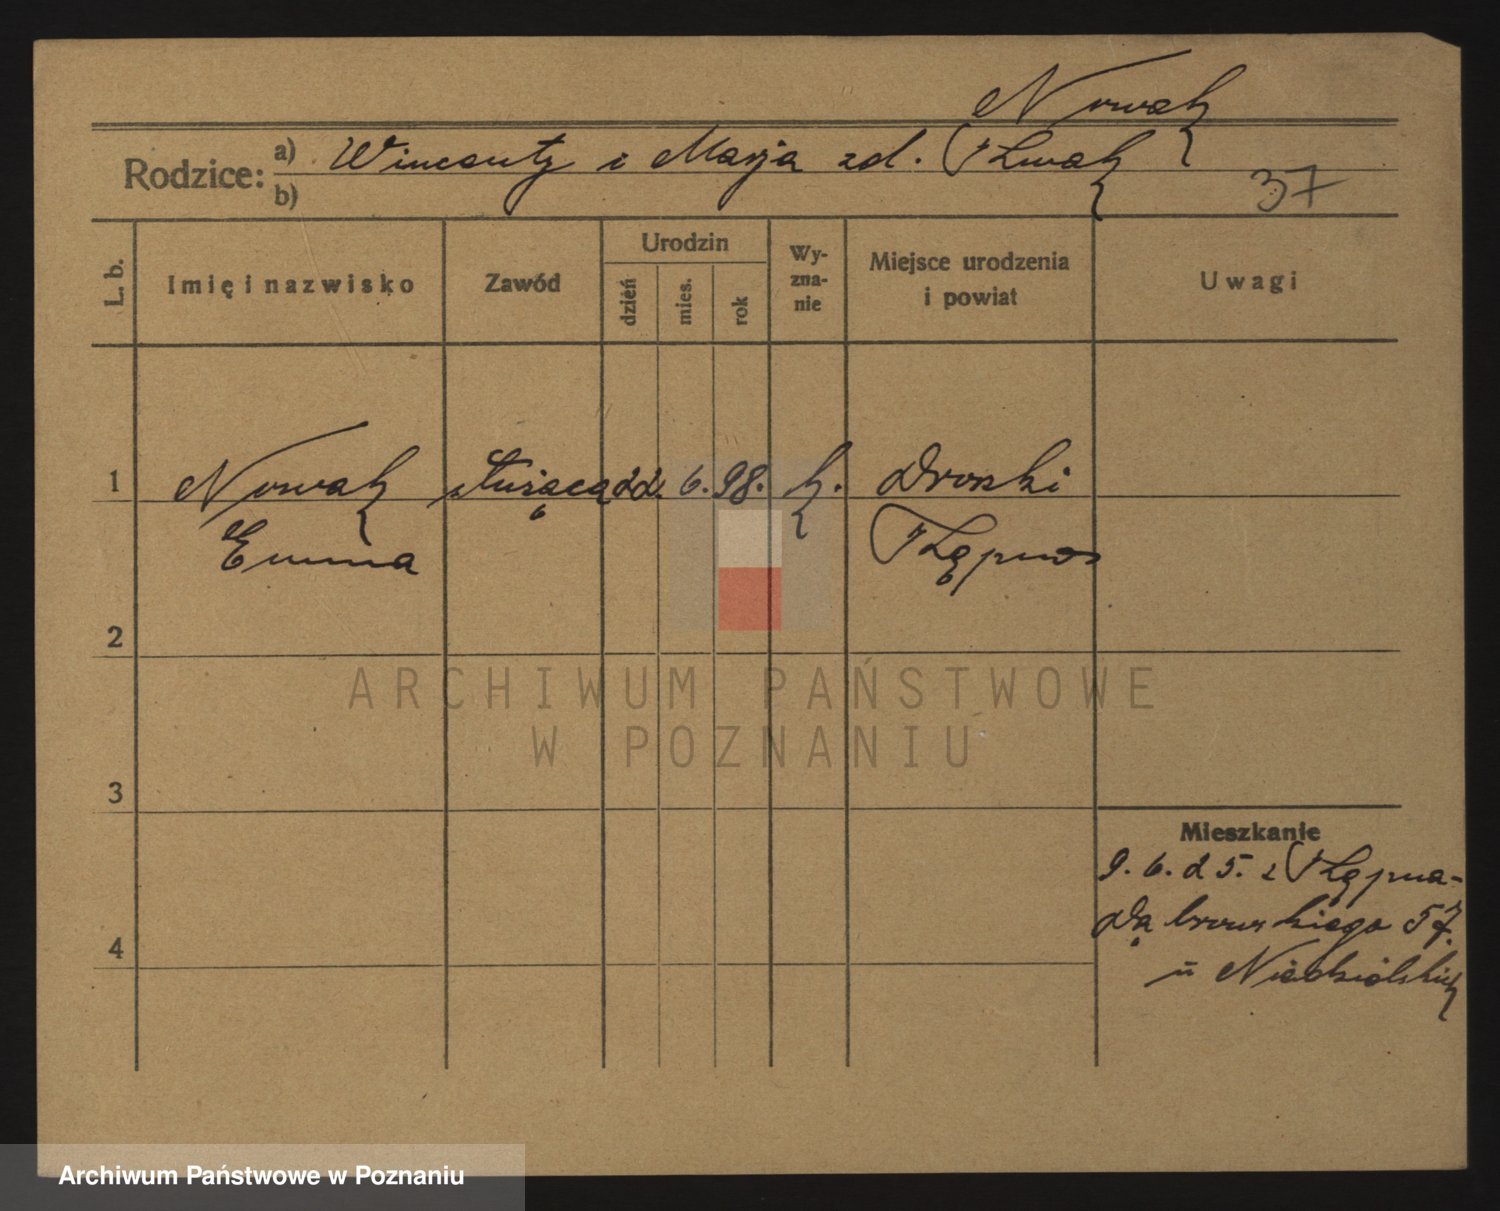 Nowak
Rodzice: a) Wincenty i Marja zd.
b)
37
L. b.
Imię i nazwisko
Zawód
Urodzin
dzień
mies.
rok
Wy-
zna-
nie
Miejsce urodzenia
i powiat
Uwagi
1
Nowak
służąca
22.
6.
98.
k.
Droski
Emma
Kępno
2
ARCHIWUM PAŃSTWOWE
W POZNANIU
3
Mieszkanie
9. 6. 25. z Kępna-
Dąbrowskiego 57.
4
u Niedzielskich
Archiwum Państwowe w Poznaniu